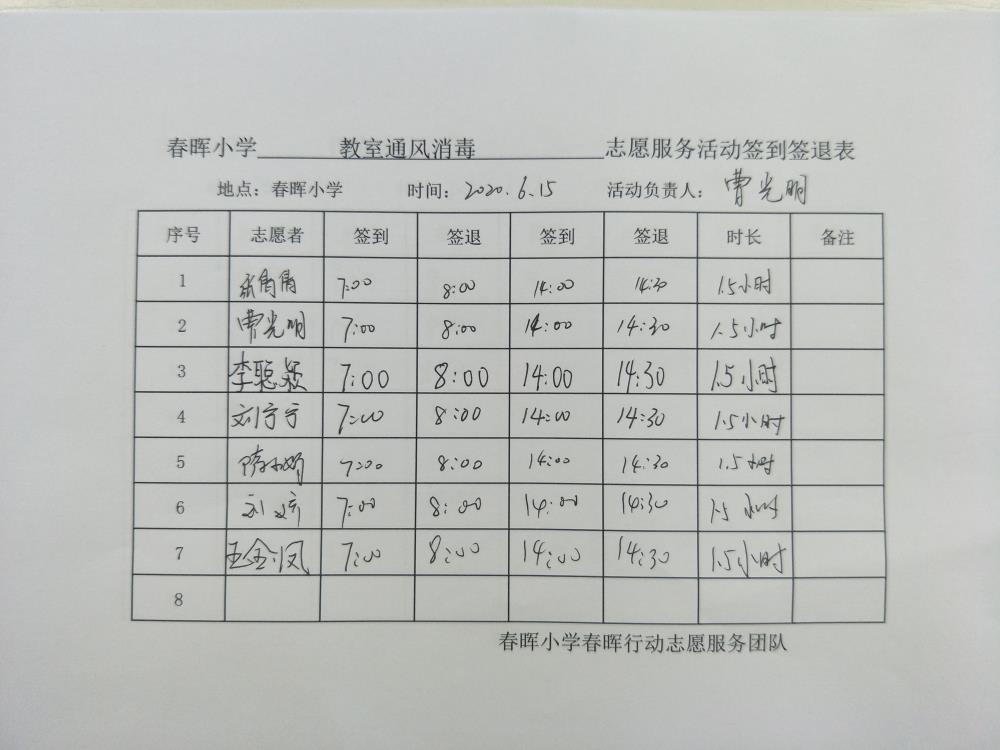 春晖小学 教室通风消毒 志愿服务活动签到签退表
地点：春晖小学 时间：2020.6.15 活动负责人：曹光明
序号 志愿者 签到 签退 签到 签退 时长 备注
1 7:00 8:00 14:00 14:30 1.5小时
2 曹光明 7:00 8:00 14:00 14:30 1.5小时
3 李聪颖 7:00 8:00 14:00 14:30 1.5小时
4 刘宁宁 7:00 8:00 14:00 14:30 1.5小时
5 7:00 8:00 14:00 14:30 1.5小时
6 刘 7:00 8:00 14:00 14:30 1.5小时
7 王金凤 7:00 8:00 14:00 14:30 1.5小时
8
春晖小学春晖行动志愿服务团队